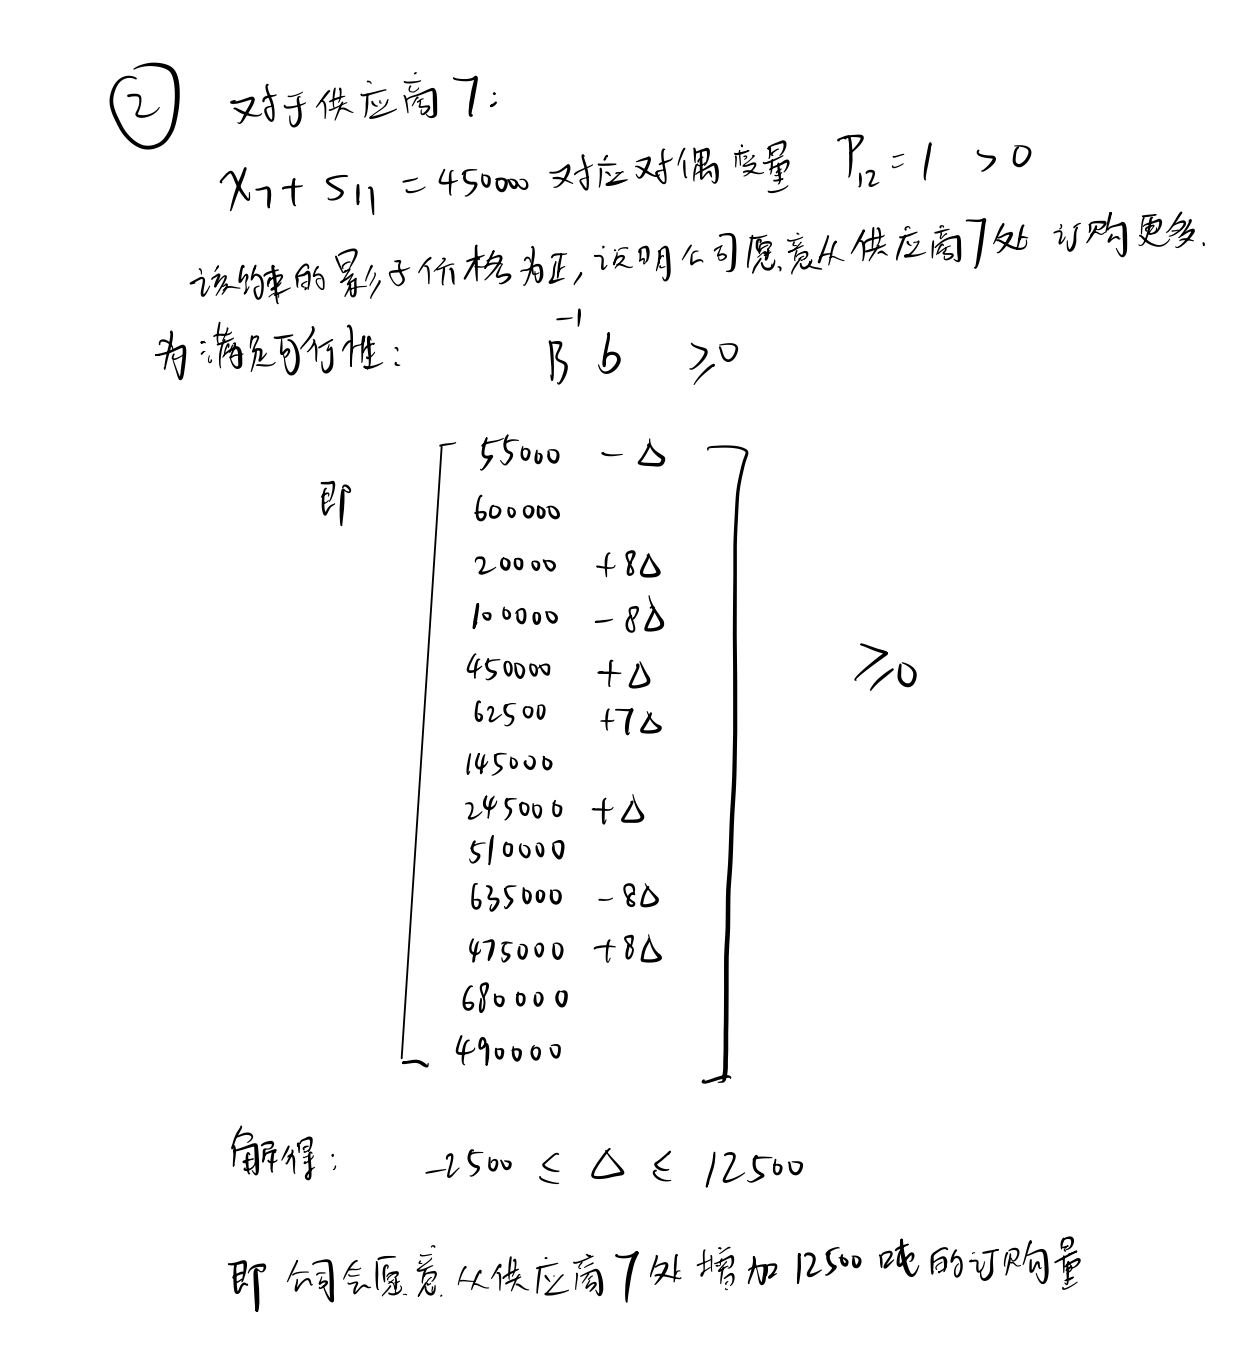 ② 对于供应商7:
x₇ + s₁₁ = 450000 对应对偶变量 P₁₂ = 1 > 0
该约束的影子价格为正,说明公司愿意从供应商7处订购更多.
为满足可行性: B⁻¹ b ≥ 0
55000 - Δ
600000
20000 + 8Δ
100000 - 8Δ
即
450000 + Δ
≥ 0
62500 + 7Δ
145000
245000 + Δ
510000
635000 - 8Δ
475000 + 8Δ
680000
490000
解得: -2500 ≤ Δ ≤ 12500
即 公司会愿意从供应商7处增加12500吨的订购量